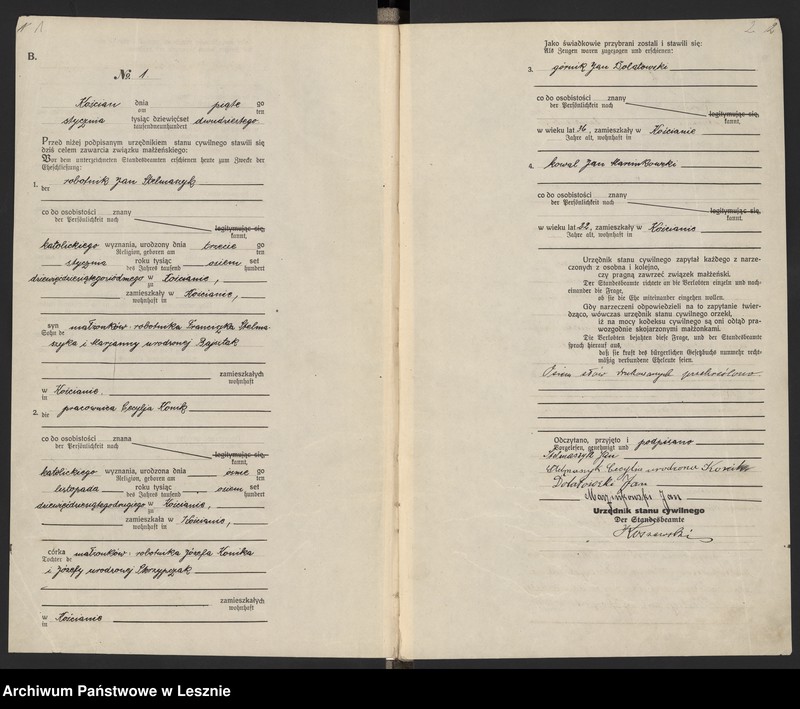 1
B.
No. 1
Kościan dnia piąte go
am ten
stycznia tysiąc dziewięćset dwudziestego
tausendneunhundert
Przed niżej podpisanym urzędnikiem stanu cywilnego stawili się
dziś celem zawarcia związku małżeńskiego:
Vor dem unterzeichneten Standesbeamten erschienen heute zum Zwecke der
Eheschließung:
1. robotnik Jan Stelmaszyk
der
co do osobistości znany
der Persönlichkeit nach
legitymując się,
kannt,
katolickiego wyznania, urodzony dnia trzecie go
Religion, geboren am ten
stycznia roku tysiąc osiem set
des Jahres tausend hundert
dziewięćdziesiątegosiódmego w Kościanie,
zu
zamieszkały w Kościanie,
wohnhaft in
syn małżonków: robotnika Franciszka Stelma-
Sohn de
szyka i Marjanny urodzonej Ratajczak
zamieszkałych
wohnhaft
w Kościanie.
in
2. pracownica Cecylja Konik
die
co do osobistości znana
der Persönlichkeit nach
legitymując się,
kannt,
katolickiego wyznania, urodzona dnia ósme go
Religion, geboren am ten
listopada roku tysiąc osiem set
des Jahres tausend hundert
dziewięćdziesiątegodrugiego w Kościanie,
zu
zamieszkała w Kościanie,
wohnhaft in
córka małżonków: robotnika Józefa Konika
Tochter de
i Józefy urodzonej Skrzypczak
zamieszkałych
wohnhaft
w Kościanie
in
2 2
Jako świadkowie przybrani zostali i stawili się:
Als Zeugen waren zugezogen und erschienen:
3. górnik Jan Dolatowski
co do osobistości znany
der Persönlichkeit nach
legitymując się,
kannt,
w wieku lat 36, zamieszkały w Kościanie
Jahre alt, wohnhaft in
4. kowal Jan Marcinkowski
co do osobistości znany
der Persönlichkeit nach
legitymując się,
kannt,
w wieku lat 22, zamieszkały w Kościanie
Jahre alt, wohnhaft in
Urzędnik stanu cywilnego zapytał każdego z narze-
czonych z osobna i kolejno,
czy pragną zawrzeć związek małżeński.
Der Standesbeamte richtete an die Verlobten einzeln und nach-
einander die Frage,
ob sie die Ehe miteinander eingehen wollen.
Gdy narzeczeni odpowiedzieli na to zapytanie twier-
dząco, wówczas urzędnik stanu cywilnego orzekł,
iż na mocy kodeksu cywilnego są oni odtąd pra-
wozgodnie skojarzonymi małżonkami.
Die Verlobten bejahten diese Frage, und der Standesbeamte
sprach hierauf aus,
daß sie kraft des bürgerlichen Gesetzbuchs nunmehr recht-
mäßig verbundene Eheleute seien.
Osiem słów drukowanych przekreślono.
Odczytano, przyjęto i podpisano
Vorgelesen, genehmigt und
Stelmaszyk Jan
Stelmaszyk Cecylia urodzona Konik
Dolatowski Jan
Marcinkowski Jan
Urzędnik stanu cywilnego
Der Standesbeamte
Archiwum Państwowe w Lesznie